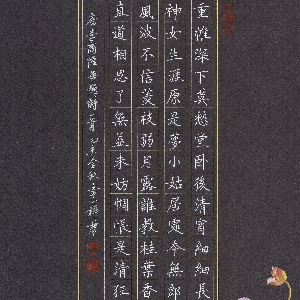 重帷深下莫愁堂臥後清宵細細長
神女生涯原是夢小姑居處本無郎
風波不信菱枝弱月露誰教桂葉香
直道相思了無益未妨惆悵是清狂
唐李商隱無題詩一首 金秋 書